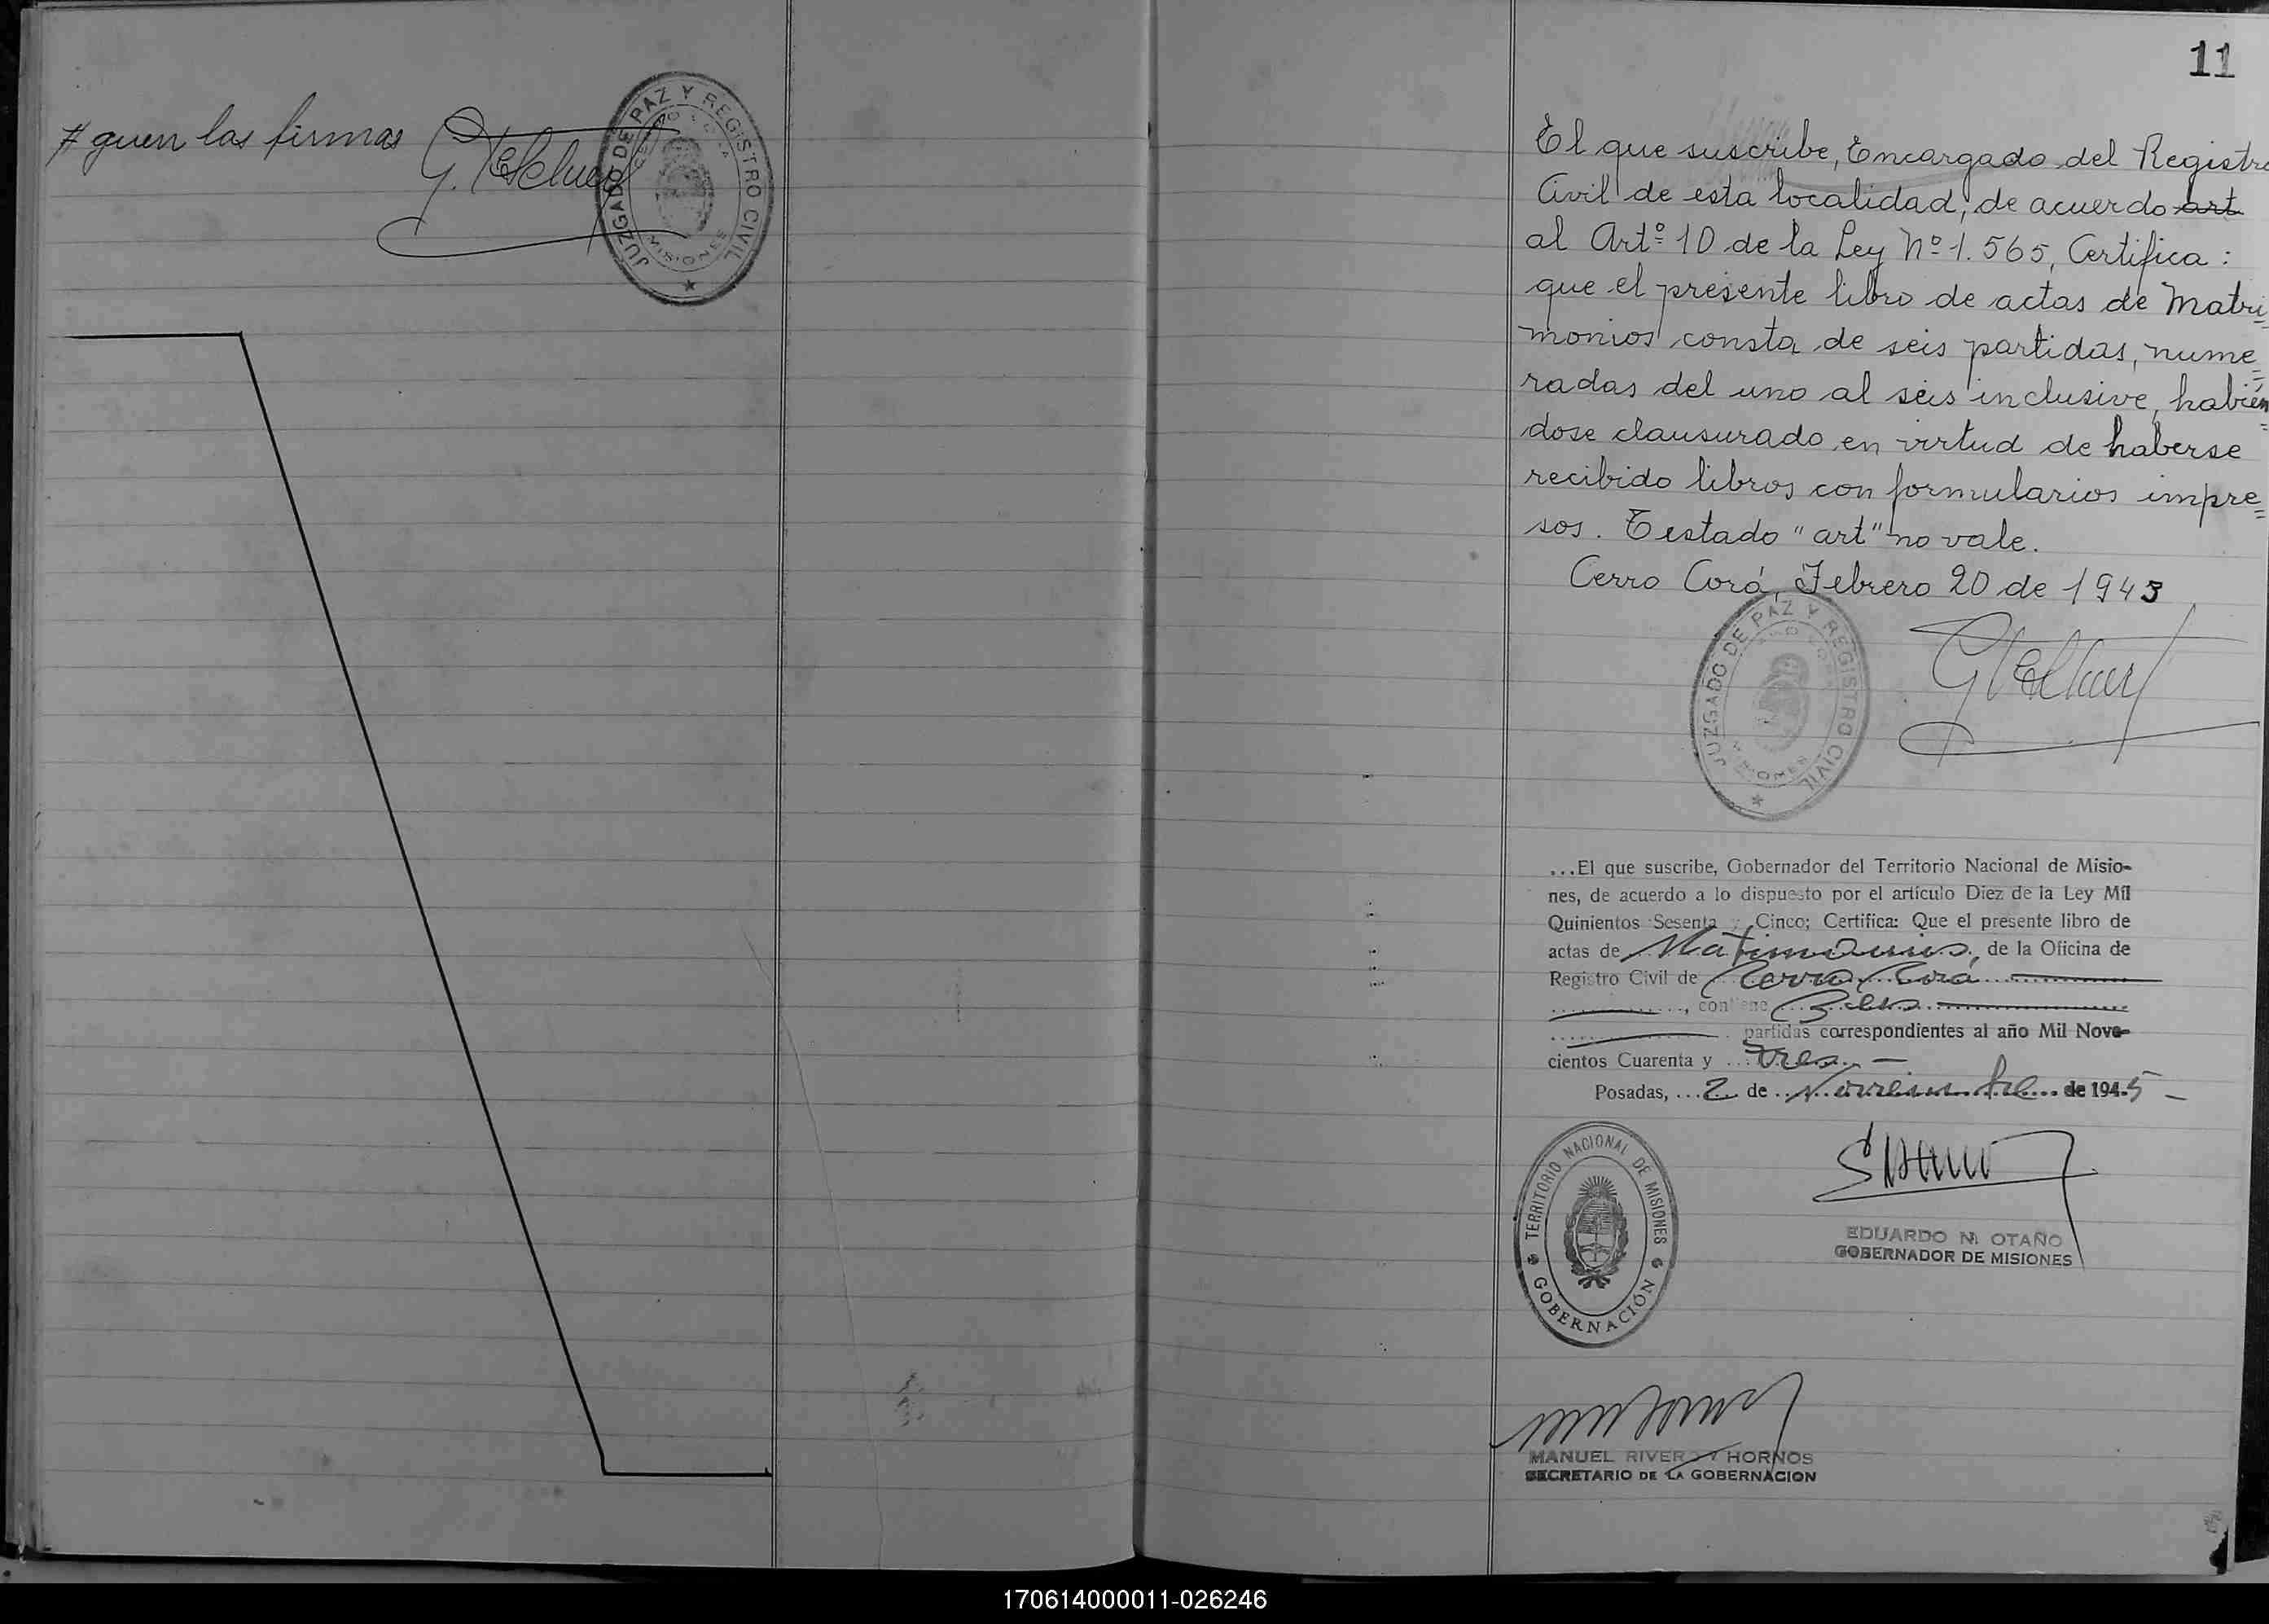 # guen las firmas
JUZGADO DE PAZ Y REGISTRO CIVIL
MISIONES
11
El que suscribe, Encargado del Registro
Civil de esta localidad, de acuerdo art
al Artº 10 de la Ley Nº 1.565, Certifica:
que el presente libro de actas de Matri=
monios consta de seis partidas, nume=
radas del uno al seis inclusive, habién=
dose clausurado en virtud de haberse
recibido libros con formularios impre=
sos. Testado "art" no vale.
Cerro Corá, Febrero 20 de 1943
JUZGADO DE PAZ Y REGISTRO CIVIL
MISIONES
...El que suscribe, Gobernador del Territorio Nacional de Misio-
nes, de acuerdo a lo dispuesto por el artículo Diez de la Ley Mil
Quinientos Sesenta y Cinco; Certifica: Que el presente libro de
actas de Matrimonios, de la Oficina de
Registro Civil de Cerro Corá
, contiene Seis
partidas correspondientes al año Mil Nove-
cientos Cuarenta y tres.-
Posadas, 2 de Noviembre de 1945-
TERRITORIO NACIONAL DE MISIONES
GOBERNACIÓN
EDUARDO M. OTAÑO
GOBERNADOR DE MISIONES
MANUEL RIVERO Y HORNOS
SECRETARIO DE LA GOBERNACION
170614000011-026246